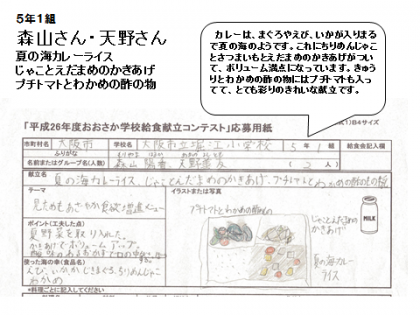 5年1組
森山さん・天野さん
夏の海カレーライス
じゃことえだまめのかきあげ
プチトマトとわかめの酢の物
カレーは、まぐろやえび、いかが入りまる
で夏の海のようです。これにちりめんじゃこ
とさつまいもとえだまめのかきあげがつい
て、ボリューム満点になっています。きゅう
りとわかめの酢の物にはプチトマトも入っ
てて、とても彩りのきれいな献立です。
「平成26年度おおさか学校給食献立コンテスト」応募用紙
市町村名 大阪市
大阪市立堀江小学校 5年1組
給食会記入欄
ふりがな
名前またはグループ名(人数)
献立名
夏の海カレーライス、じゃことえだまめのかきあげ、プチトマトとわかめの酢の物
テーマ
イラストまたは写真
ポイント(工夫した点)
夏野菜を取り入れた。
かきあげでボリュームアップ。
使った海の幸(食品名)
わかめ
※料理ごとに記入してください
プチトマトとわかめの酢の物
じゃことえだまめの
かきあげ
夏の海カレー
ライス
MILK